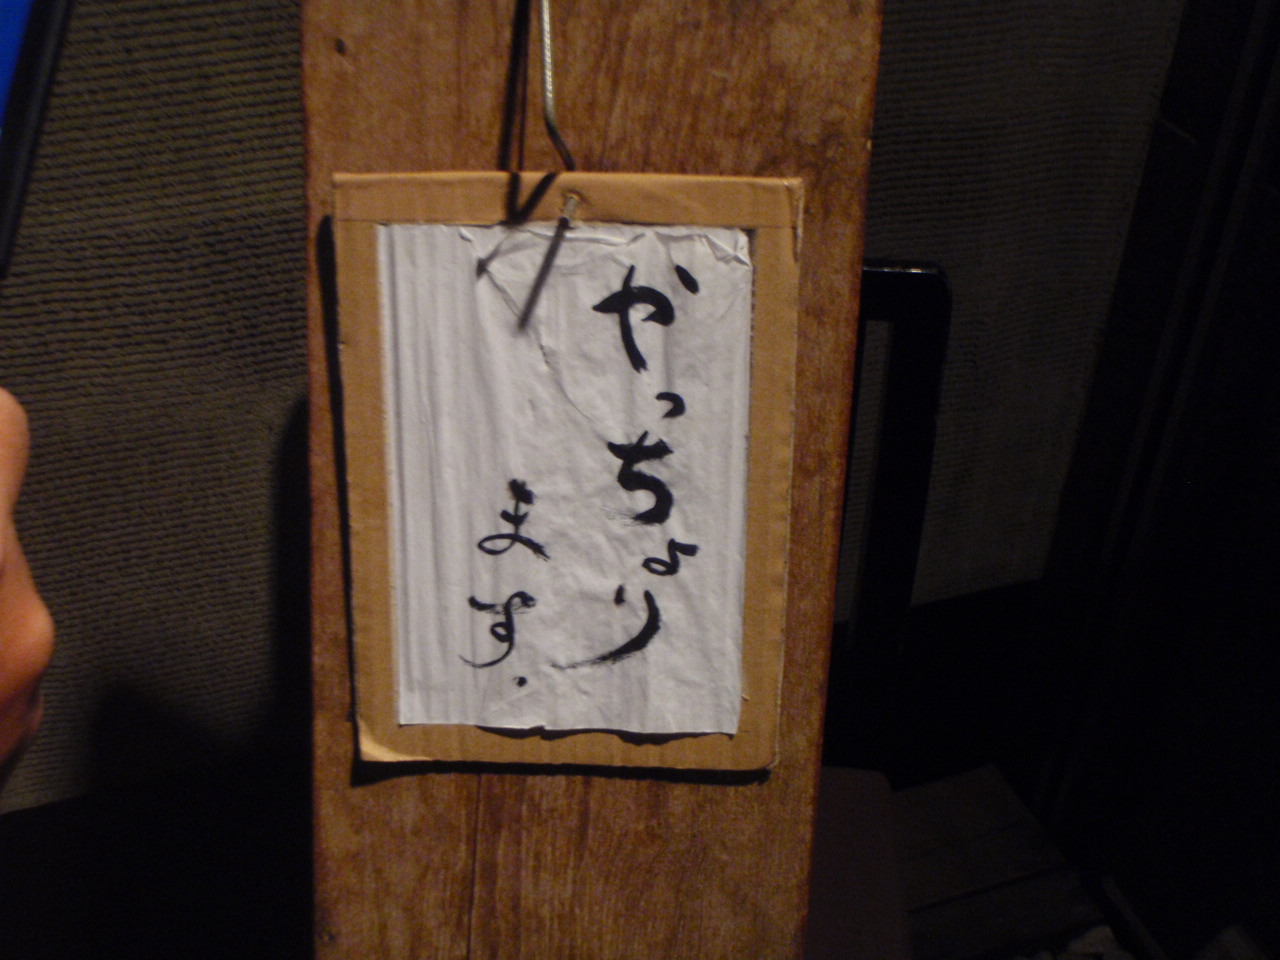 やっちょり
ます.